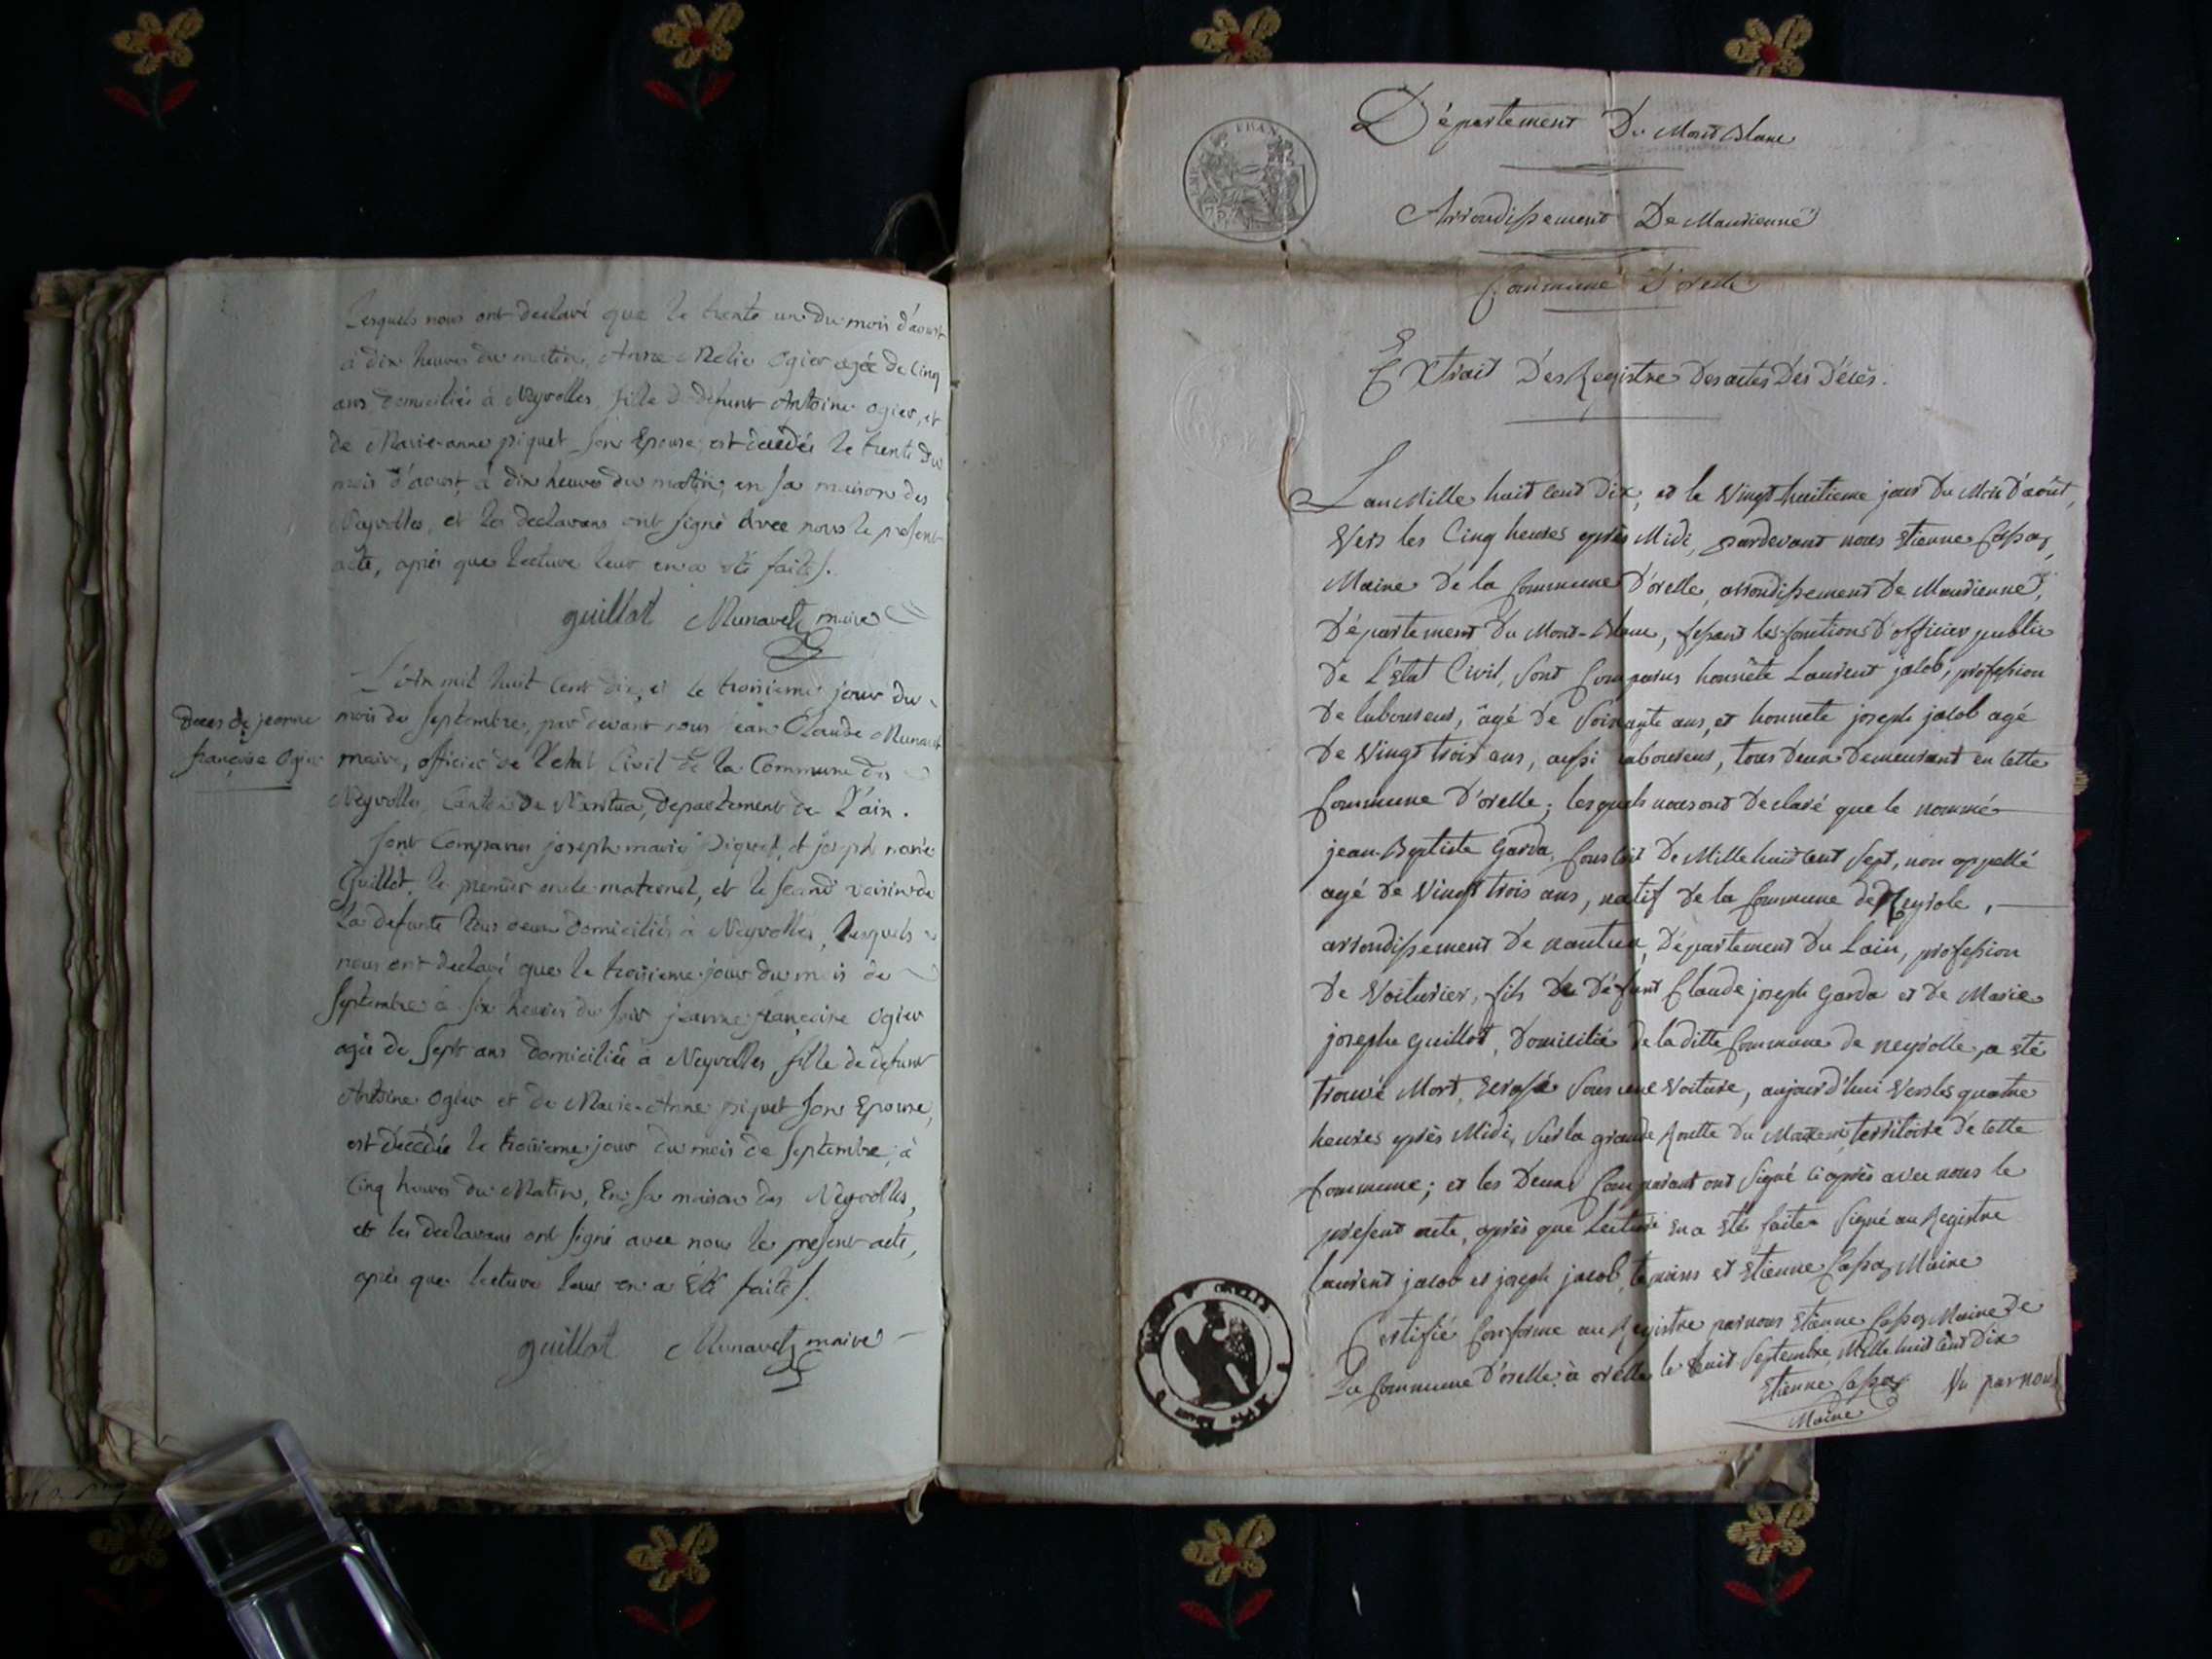 Lesquels nous ont declaré que le trente un du mois d'aoust
à dix heures du matin, Anne Melie Ogier agée de Cinq
ans domiciliée à Neyrolles, fille de défunt Antoine Ogier, et
de Marie-anne piquet son Epouse, est decedée le trente du
mois d'aoust, à dix heures du matin, en sa maison des
Neyrolles, et les declarans ont signé avec nous le present
acte, après que lecture leur en a été faite /.
guillot Munavet maire
L'an mil huit cent dix, et le troisieme jour du
mois de septembre, par devant nous Jean Claude Munavet
maire, officier de l'etat Civil de la Commune des
Neyrolles, Canton de Nantua, departement de L'ain.
deces de jeanne
françoise Ogier
sont Comparus joseph marie piquet, et joseph marie
Guillot, le premier oncle maternel, et le second voisin de
La defunte tous deux domiciliés à Neyrolles, Lesquels
nous ont declaré que le troisieme jour du mois de
Septembre à six heures du soir jeanne françoise Ogier
agée de sept ans domiciliée à Neyrolles fille de defunt
Antoine Ogier et de Marie-Anne piquet son Epouse,
est decédée le troisieme jour du mois de Septembre, à
Cinq heures du Matin, En sa maison des Neyrolles,
et les declarans ont signé avec nous le present acte,
après que lecture leur en a Eté faite /.
guillot Munavet maire
Département Du Mont Blanc
Arrondissement De Maurienne
Commune D'orelle
EMP. FRAN
75
Extrait Des Registre Des actes Des Décès.
L'an Mille huit cent Dix, et le Vingt huitieme jour Du Mois D'août,
Vers les Cinq heures après Midi, pardevant nous Etienne
Maire De la Commune D'orelle, arrondissement De Maurienne,
Département Du Mont-Blanc, fesant les fonctions D'officier public
De L'Etat Civil, sont Comparus honnête Laurent jacob, profession
De laboureur, âgé De Soixante ans, et honnete joseph jacob agé
De Vingt trois ans, aussi laboureur, tous Deux Demeurant en cette
Commune D'orelle; lesquels nous ont Declaré que le nommé
jean-Baptiste Garda, Conscrit De Mille huit cent sept, non appellé
agé de Vingt trois ans, natif De la Commune de Neyrole,
arrondissement De nantua, Département Du Lain, profession
De Voiturier, fils De Défunt Claude joseph Garda et De Marie
josephe Guillot, Domicilié De la ditte Commune De neyrolle, a été
trouvé Mort, Ecrasé sous une Voiture, aujourd'hui Vers les quatre
heures après Midi, sur la grande Routte Du territoire De cette
Commune; et les Deux Comparant ont signé ci après avec nous le
present acte, après que Lecture en a Eté faite. Signé au Registre
Laurent jacob et joseph jacob, temoins et Etienne Maire
Certifié Conforme au Registre par nous Etienne Maire De
La Commune D'orelle, à orelle, le huit Septembre Mille huit cent Dix
Etienne Vu par nous
Maire
ORELLE